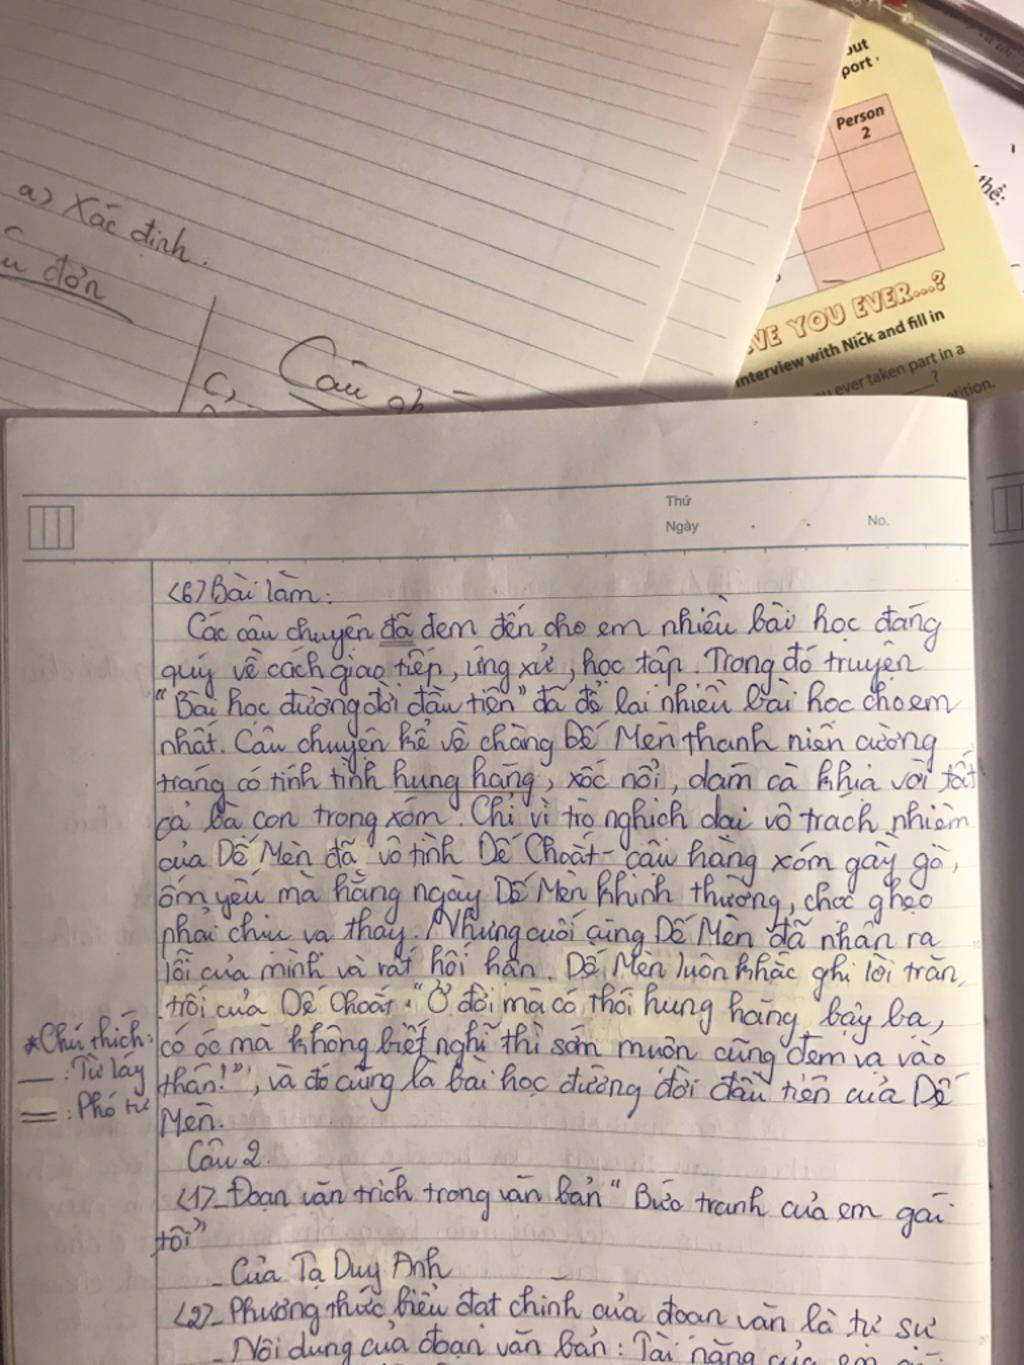 out
port
Person
2
thể:
a) Xác định.
đơn
C,
Câu
VE YOU EVER...?
interview with Nick and fill in
ever taken part in a
?
tition.
Thứ
Ngày . . No.
(6) Bài làm:
Các câu chuyện đã đem đến cho em nhiều bài học đáng
quý về cách giao tiếp, ứng xử, học tập. Trong đó truyện
"Bài học đường đời đầu tiên" đã để lại nhiều bài học cho em
nhất. Câu chuyện kể về chàng Dế Mèn thanh niên cường
tráng có tính tình hung hăng, xốc nổi, dám cà khịa với tất
cả bà con trong xóm. Chỉ vì trò nghịch dại vô trách nhiệm
của Dế Mèn đã vô tình Dế Choắt - cậu hàng xóm gầy gò,
ốm yếu mà hằng ngày Dế Mèn khinh thường, chọc ghẹo
phải chịu vạ thay. Nhưng cuối cùng Dế Mèn đã nhận ra
lỗi của mình và rất hối hận. Dế Mèn luôn khắc ghi lời trăn
trối của Dế Choắt: "Ở đời mà có thói hung hăng bậy bạ,
*Chú thích: có óc mà không biết nghĩ thì sớm muộn cũng đem vạ vào
__: Từ láy thân!", và đó cũng là bài học đường đời đầu tiên của Dế
==: Phó từ Mèn.
Câu 2.
(1)_ Đoạn văn trích trong văn bản "Bức tranh của em gái
tôi"
_ Của Tạ Duy Anh
(2)_ Phương thức biểu đạt chính của đoạn văn là tự sự
_ Nội dung của đoạn văn bản: Tài năng của em